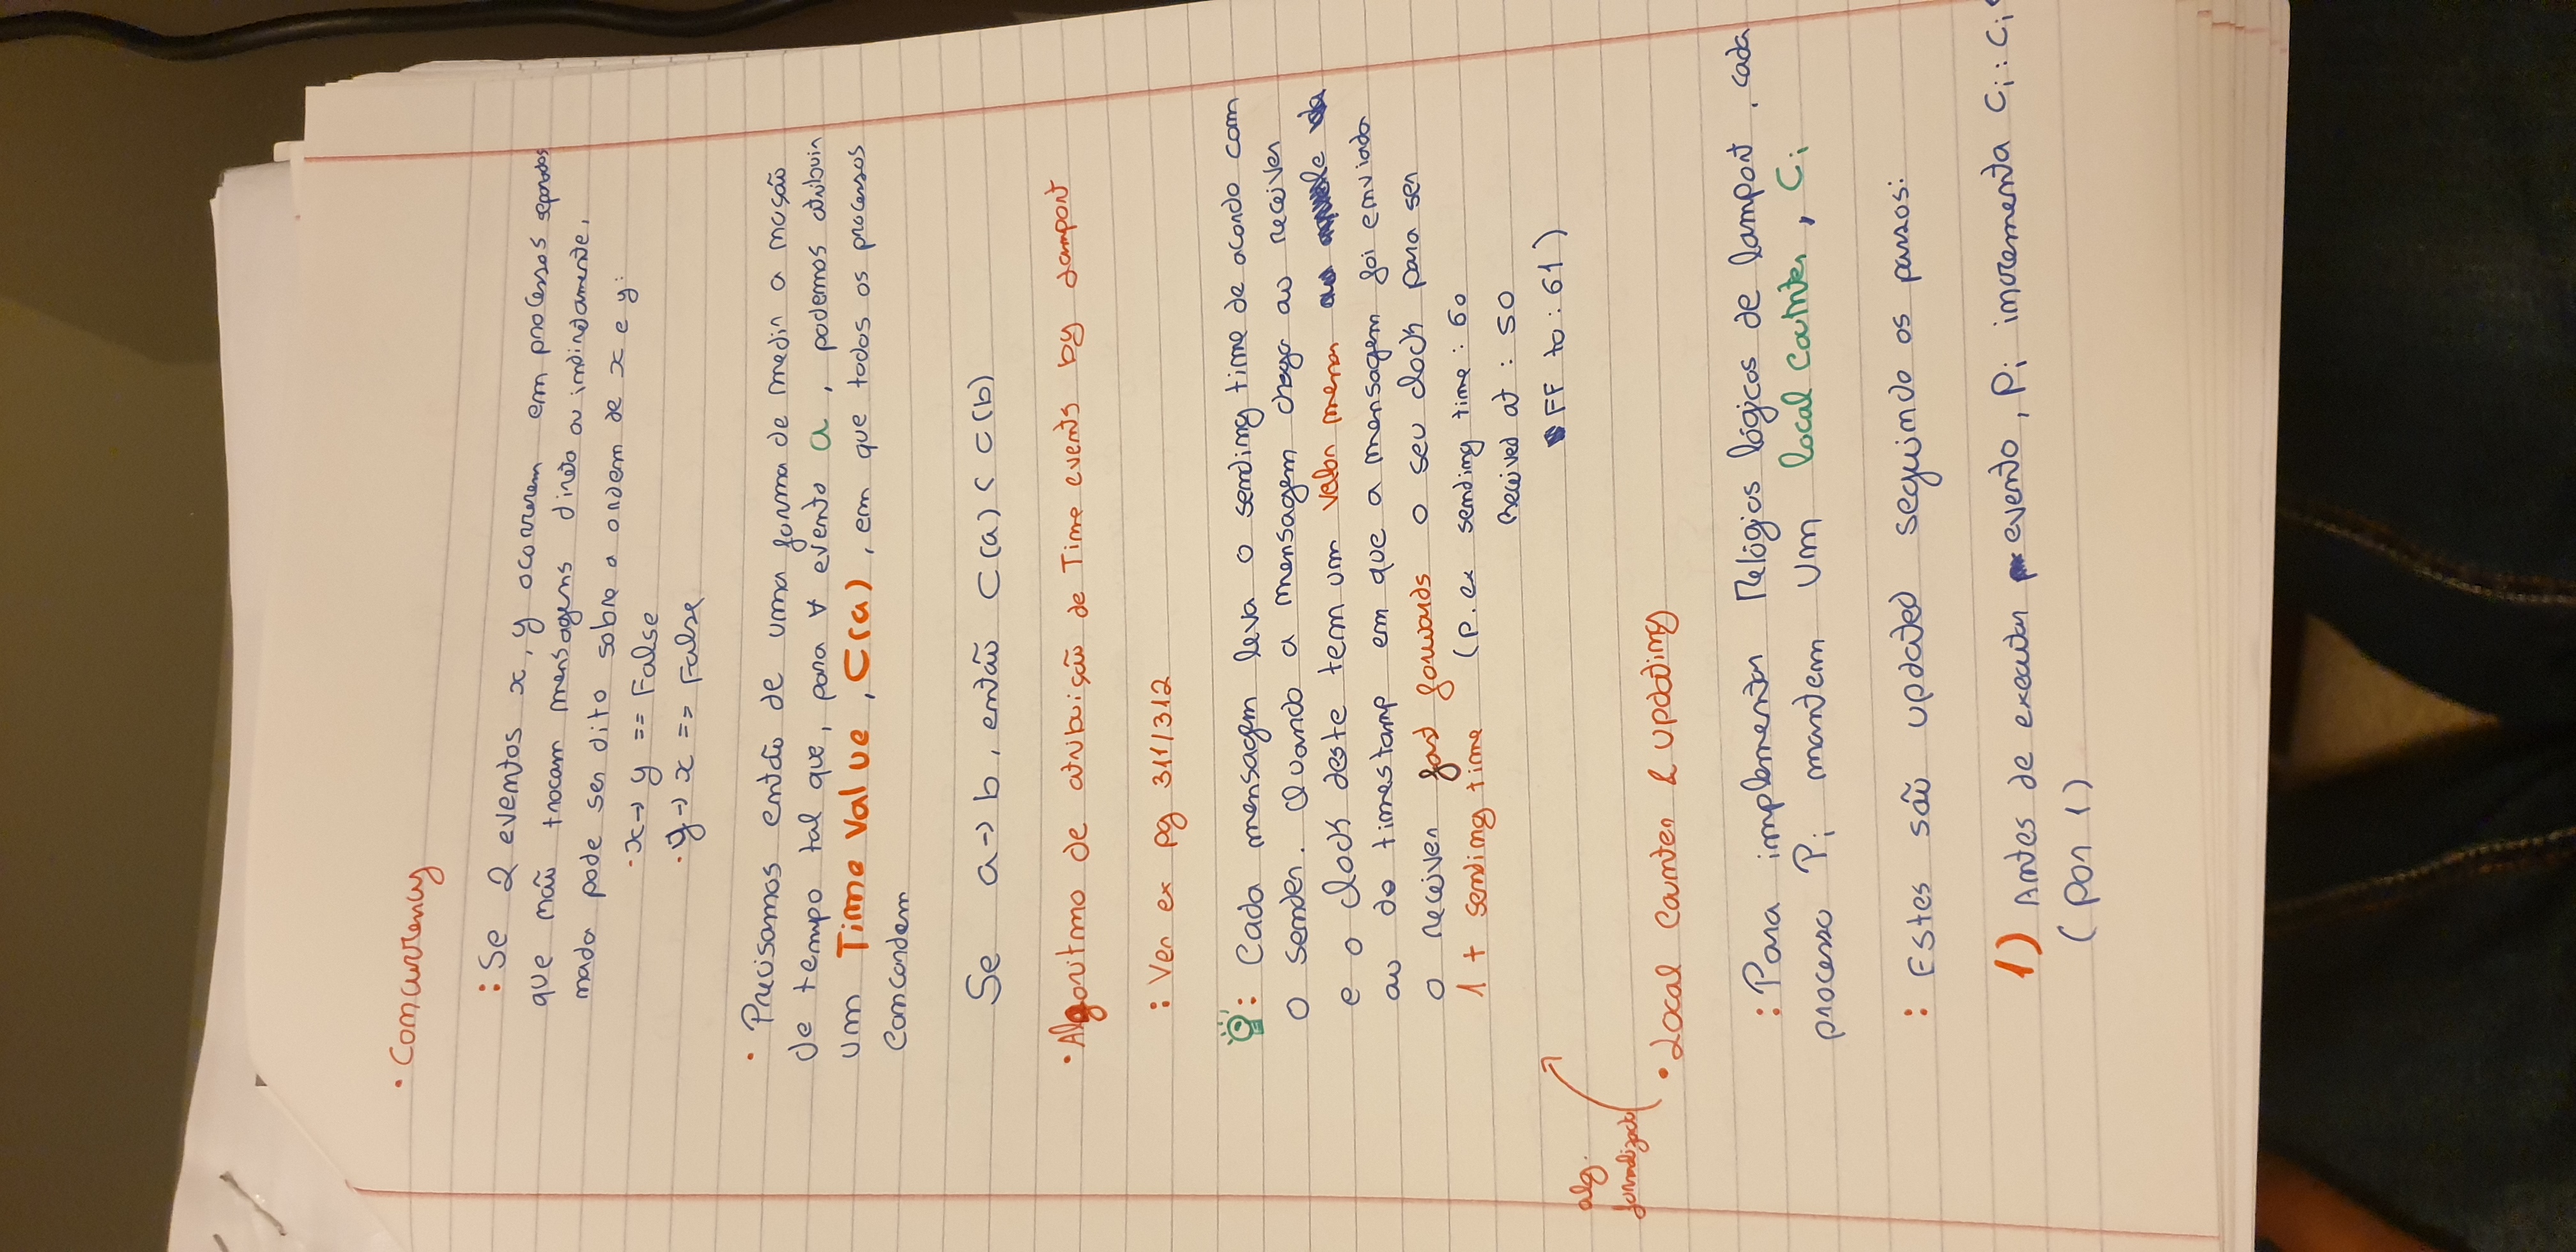 • Concurrency
: Se 2 eventos x, y ocorrerem em processos separados
que não trocam mensagens direto ou indiretamente,
nada pode ser dito sobre a ordem de x e y:
· x → y == False
· y → x == False
• Precisamos então de uma forma de medir a noção
de tempo tal que, para ∀ evento a, podemos atribuir
um Time Value, C(a), em que todos os processos
concordem
Se a → b, então C(a) < C(b)
• Algoritmo de atribuição de Time events by Lamport
: Ver ex pg 311/312
: Cada mensagem leva o sending time de acordo com
o sender. Quando a mensagem chega ao receiver
e o clock deste tem um valor menor
ao do timestamp em que a mensagem foi enviada
o receiver fast forwards o seu clock para ser
1 + sending time (p. ex sending time : 60
Received at : 50
FF to : 61)
alg.
formalizado
• Local Counter & Updating
: Para implementar Relógios lógicos de lamport, cada
processo Pi mantem um local counter, Ci
: Estes são updated seguindo os passos:
1) Antes de executar evento, Pi incrementa Ci : Ci
(por 1)